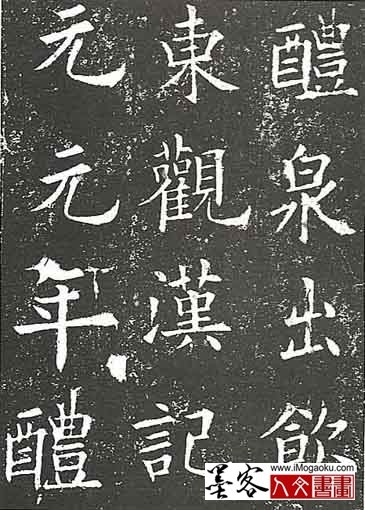 醴泉出飲
東觀漢記
元元年醴
墨客
www.iMogaoku.com
人文書畫